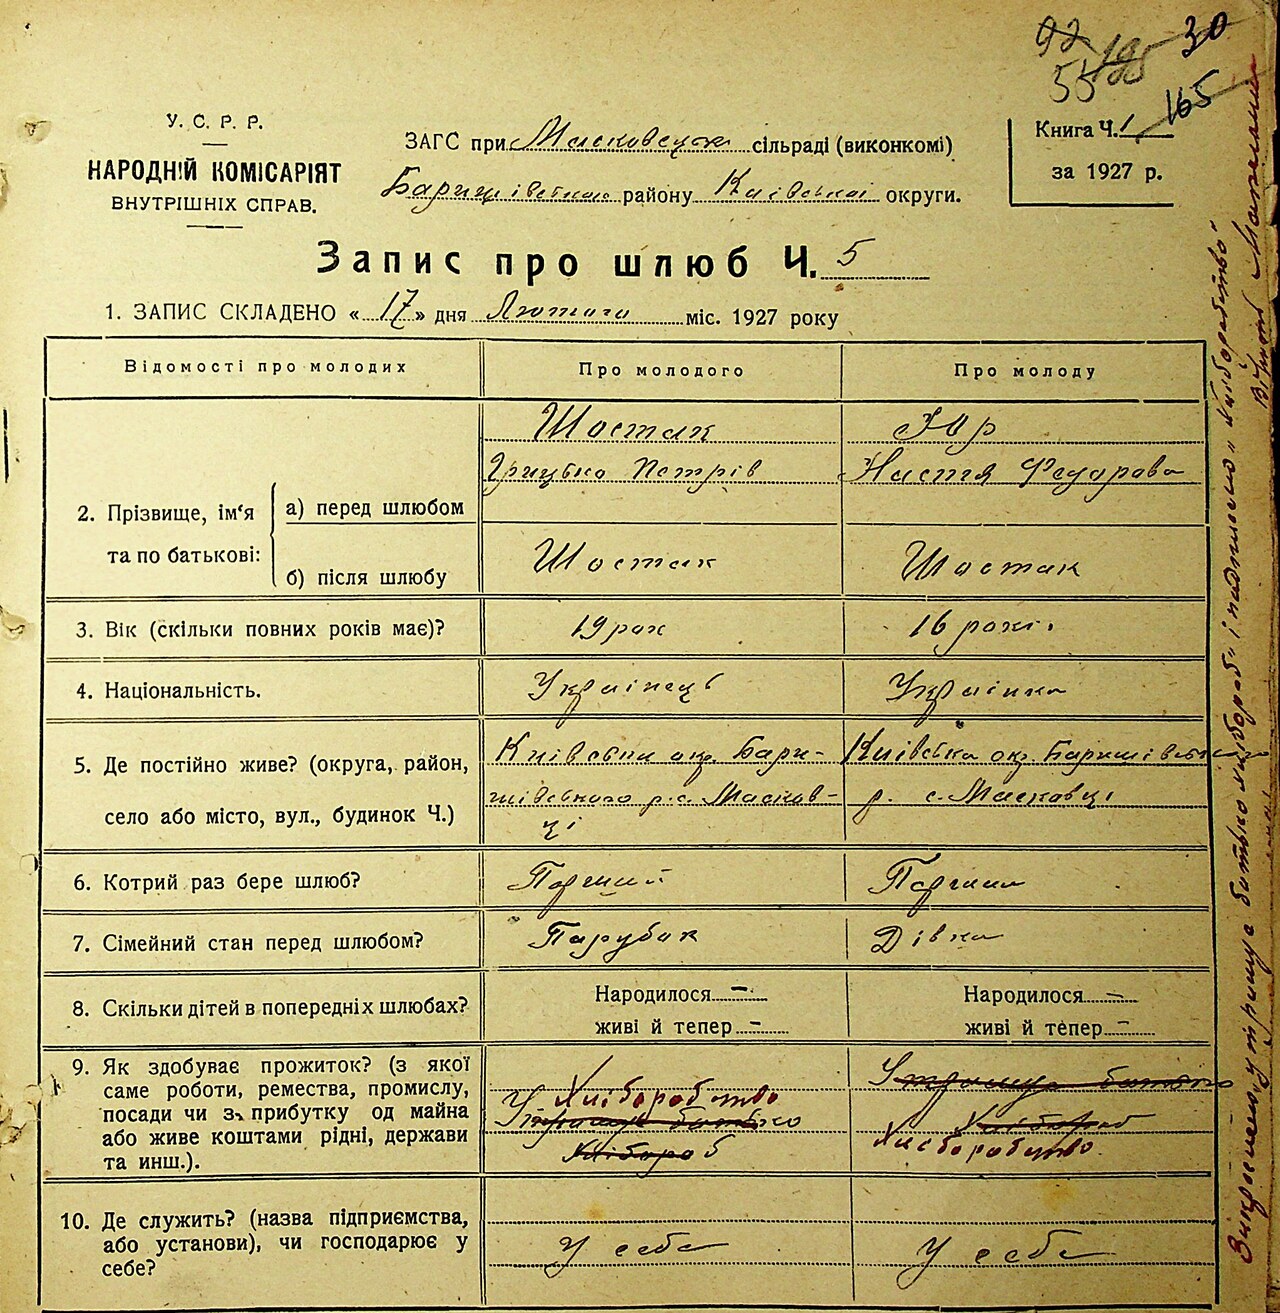 92
195
30
55
165
У. С. Р. Р.
НАРОДНІЙ КОМІСАРІЯТ
ВНУТРІШНІХ СПРАВ.
ЗАГС при Масковецьк сільраді (виконкомі)
Баришівському району Київської округи.
Книга Ч. 1
за 1927 р.
Запис про шлюб Ч. 5
1. ЗАПИС СКЛАДЕНО «17» дня Лютого міс. 1927 року
Відомості про молодих Про молодого Про молоду
2. Прізвище, ім'я та по батькові:
а) перед шлюбом
Шостак
Грицько Петрів
Юр
Настя Федорова
б) після шлюбу
Шостак
Шостак
3. Вік (скільки повних років має)? 19 рок 16 років
4. Національність. Українець Українка
5. Де постійно живе? (округа, район,
село або місто, вул., будинок Ч.)
Київська окр. Бари-
шівського р. с. Масков-
ці
Київська окр. Баришівськ
р. с. Масковці
6. Котрий раз бере шлюб? Перший Перший
7. Сімейний стан перед шлюбом? Парубок Дівка
8. Скільки дітей в попередніх шлюбах?
Народилося –
живі й тепер –
Народилося –
живі й тепер –
9. Як здобуває прожиток? (з якої
саме роботи, ремества, промислу,
посади чи з прибутку од майна
або живе коштами рідні, держави
та инш.).
Хліборобство
Утримує батько
хлібороб
Утримує батько
хлібороб
Хліборобство
10. Де служить? (назва підприємства,
або установи), чи господарює у
себе?
У себе
У себе
Закреслено утримує батько хлібороб" і надписано „хліборобство"